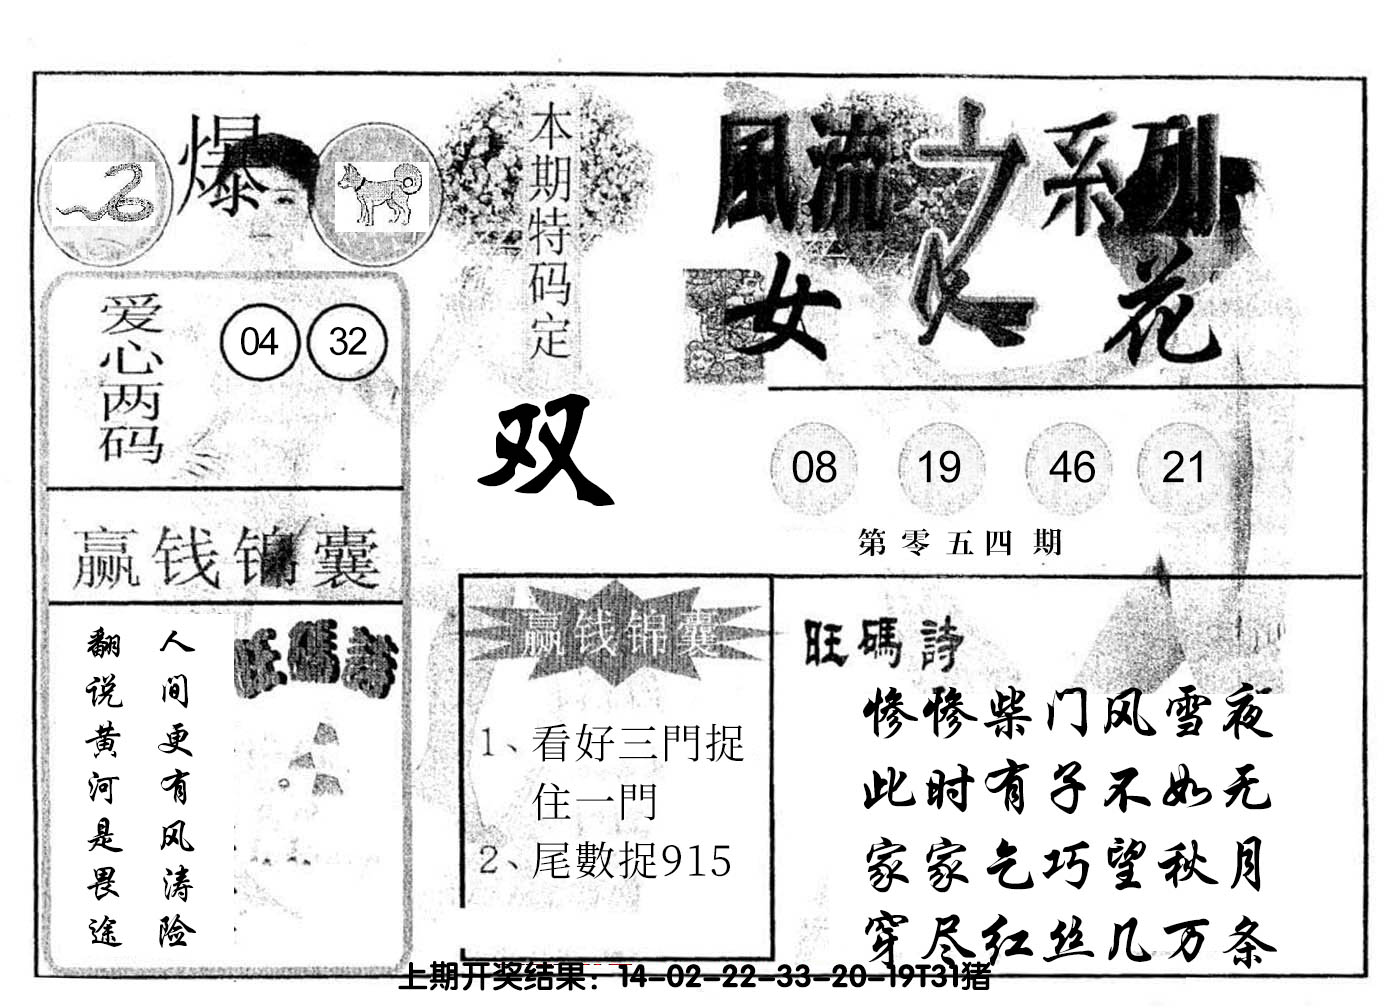 爆
本期特码定
双
風流之系列
女人花
爱心两码
04 32
08 19 46 21
第零五四期
赢钱锦囊
旺碼詩
人间更有风涛险
翻说黄河是畏途
赢钱锦囊
1、看好三門捉
住一門
2、尾數捉915
旺碼詩
惨惨柴门风雪夜
此时有子不如无
家家乞巧望秋月
穿尽红丝几万条
上期开奖结果：14-02-22-33-20-19T31猪